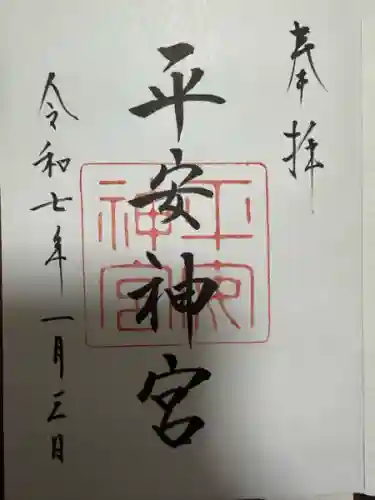 奉拝
平安神宮
平安神宮
令和七年一月三日